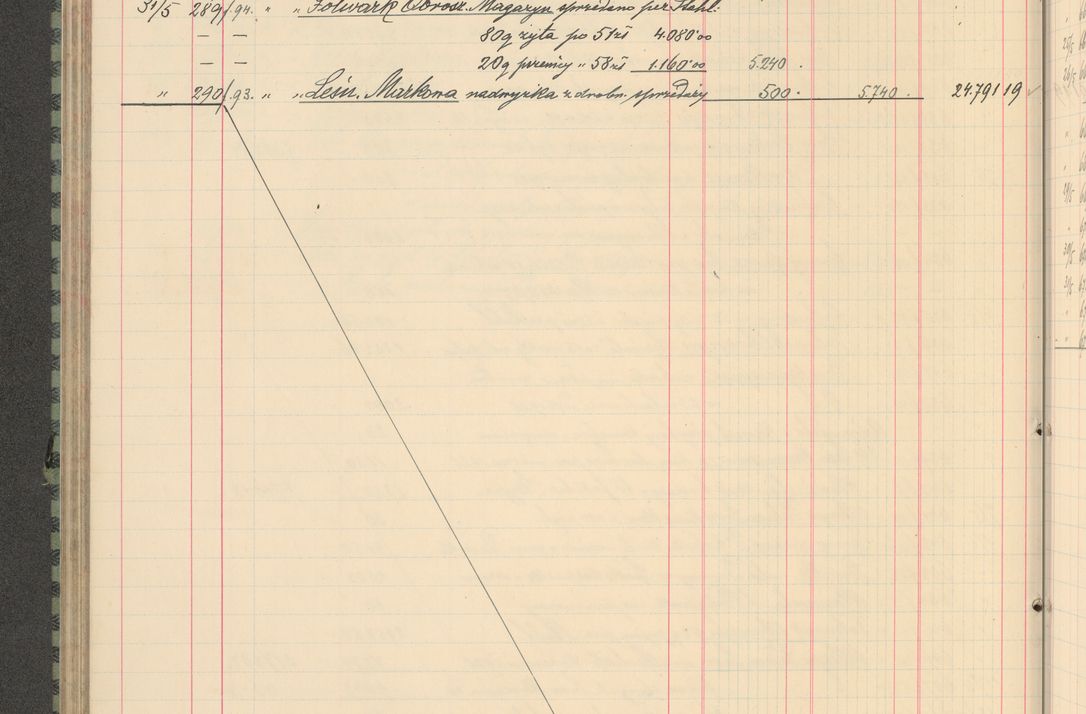 31/5 289/94. " " Folwark Obrosz. Magazyn sprzedano per Stehl:
— — 80q żyta po 51 zł 4.080·00
— — 20q pszenicy " 58 zł 1.160·00 5.240 .
" 290/93. " " Leśn. Markowa nadwyżka z drobn. sprzedaży 500· 5.740 . 24.791 19